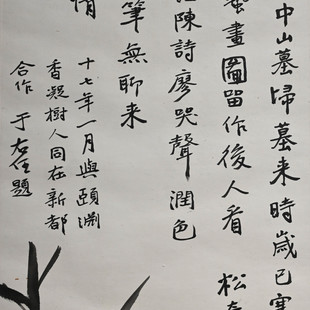 中山墓掃墓来時歲已寒
蟄畫圖留作後人看 松奇
陳詩廖哭聲潤色
筆無聊来
情
十七年一月與頤淵
香凝樹人同在新都
合作 于右任題